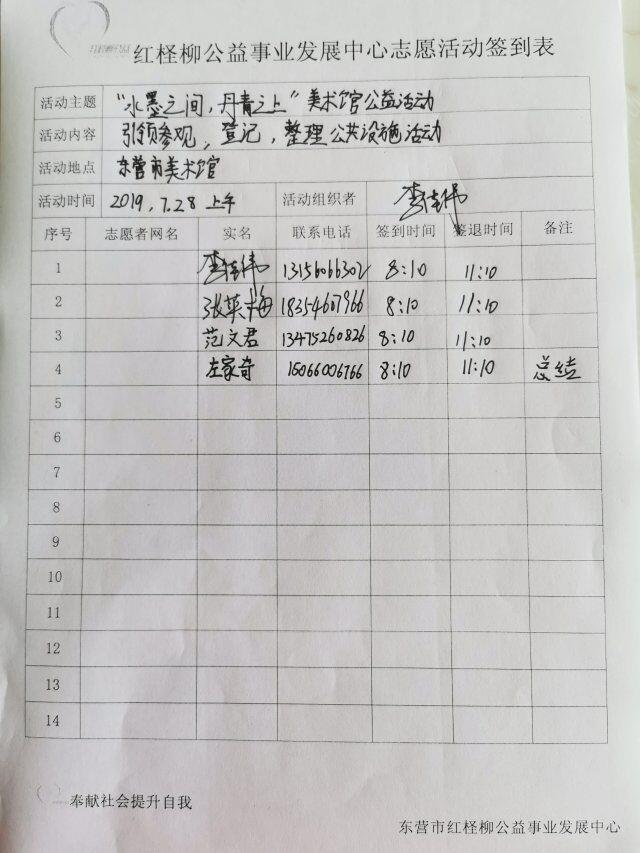 红柽柳公益事业发展中心志愿活动签到表
活动主题 “水墨之间，丹青之上”美术馆公益活动
活动内容 引领参观，登记，整理公共设施活动
活动地点 东营市美术馆
活动时间 2019.7.28 上午 活动组织者 李佳伟
序号 志愿者网名 实名 联系电话 签到时间 签退时间 备注
1 李佳伟 13156066302 8:10 11:10
2 张英梅 18354607966 8:10 11:10
3 范文君 13475260826 8:10 11:10
4 左家奇 15066006766 8:10 11:10 总结
5
6
7
8
9
10
11
12
13
14
奉献社会提升自我
东营市红柽柳公益事业发展中心